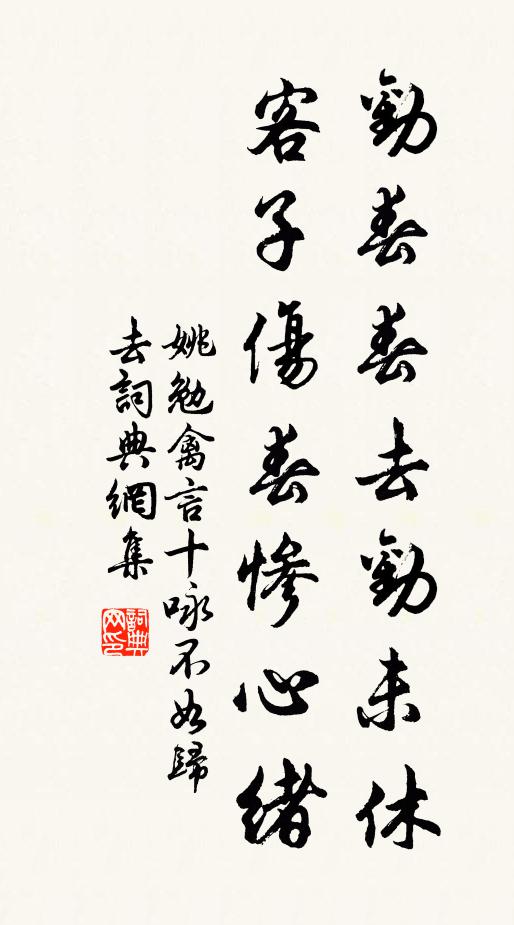 勸春春去勸未休
客子傷春慘心緒
姚勉禽言十咏不如歸
去詞典網集
詞典
网印